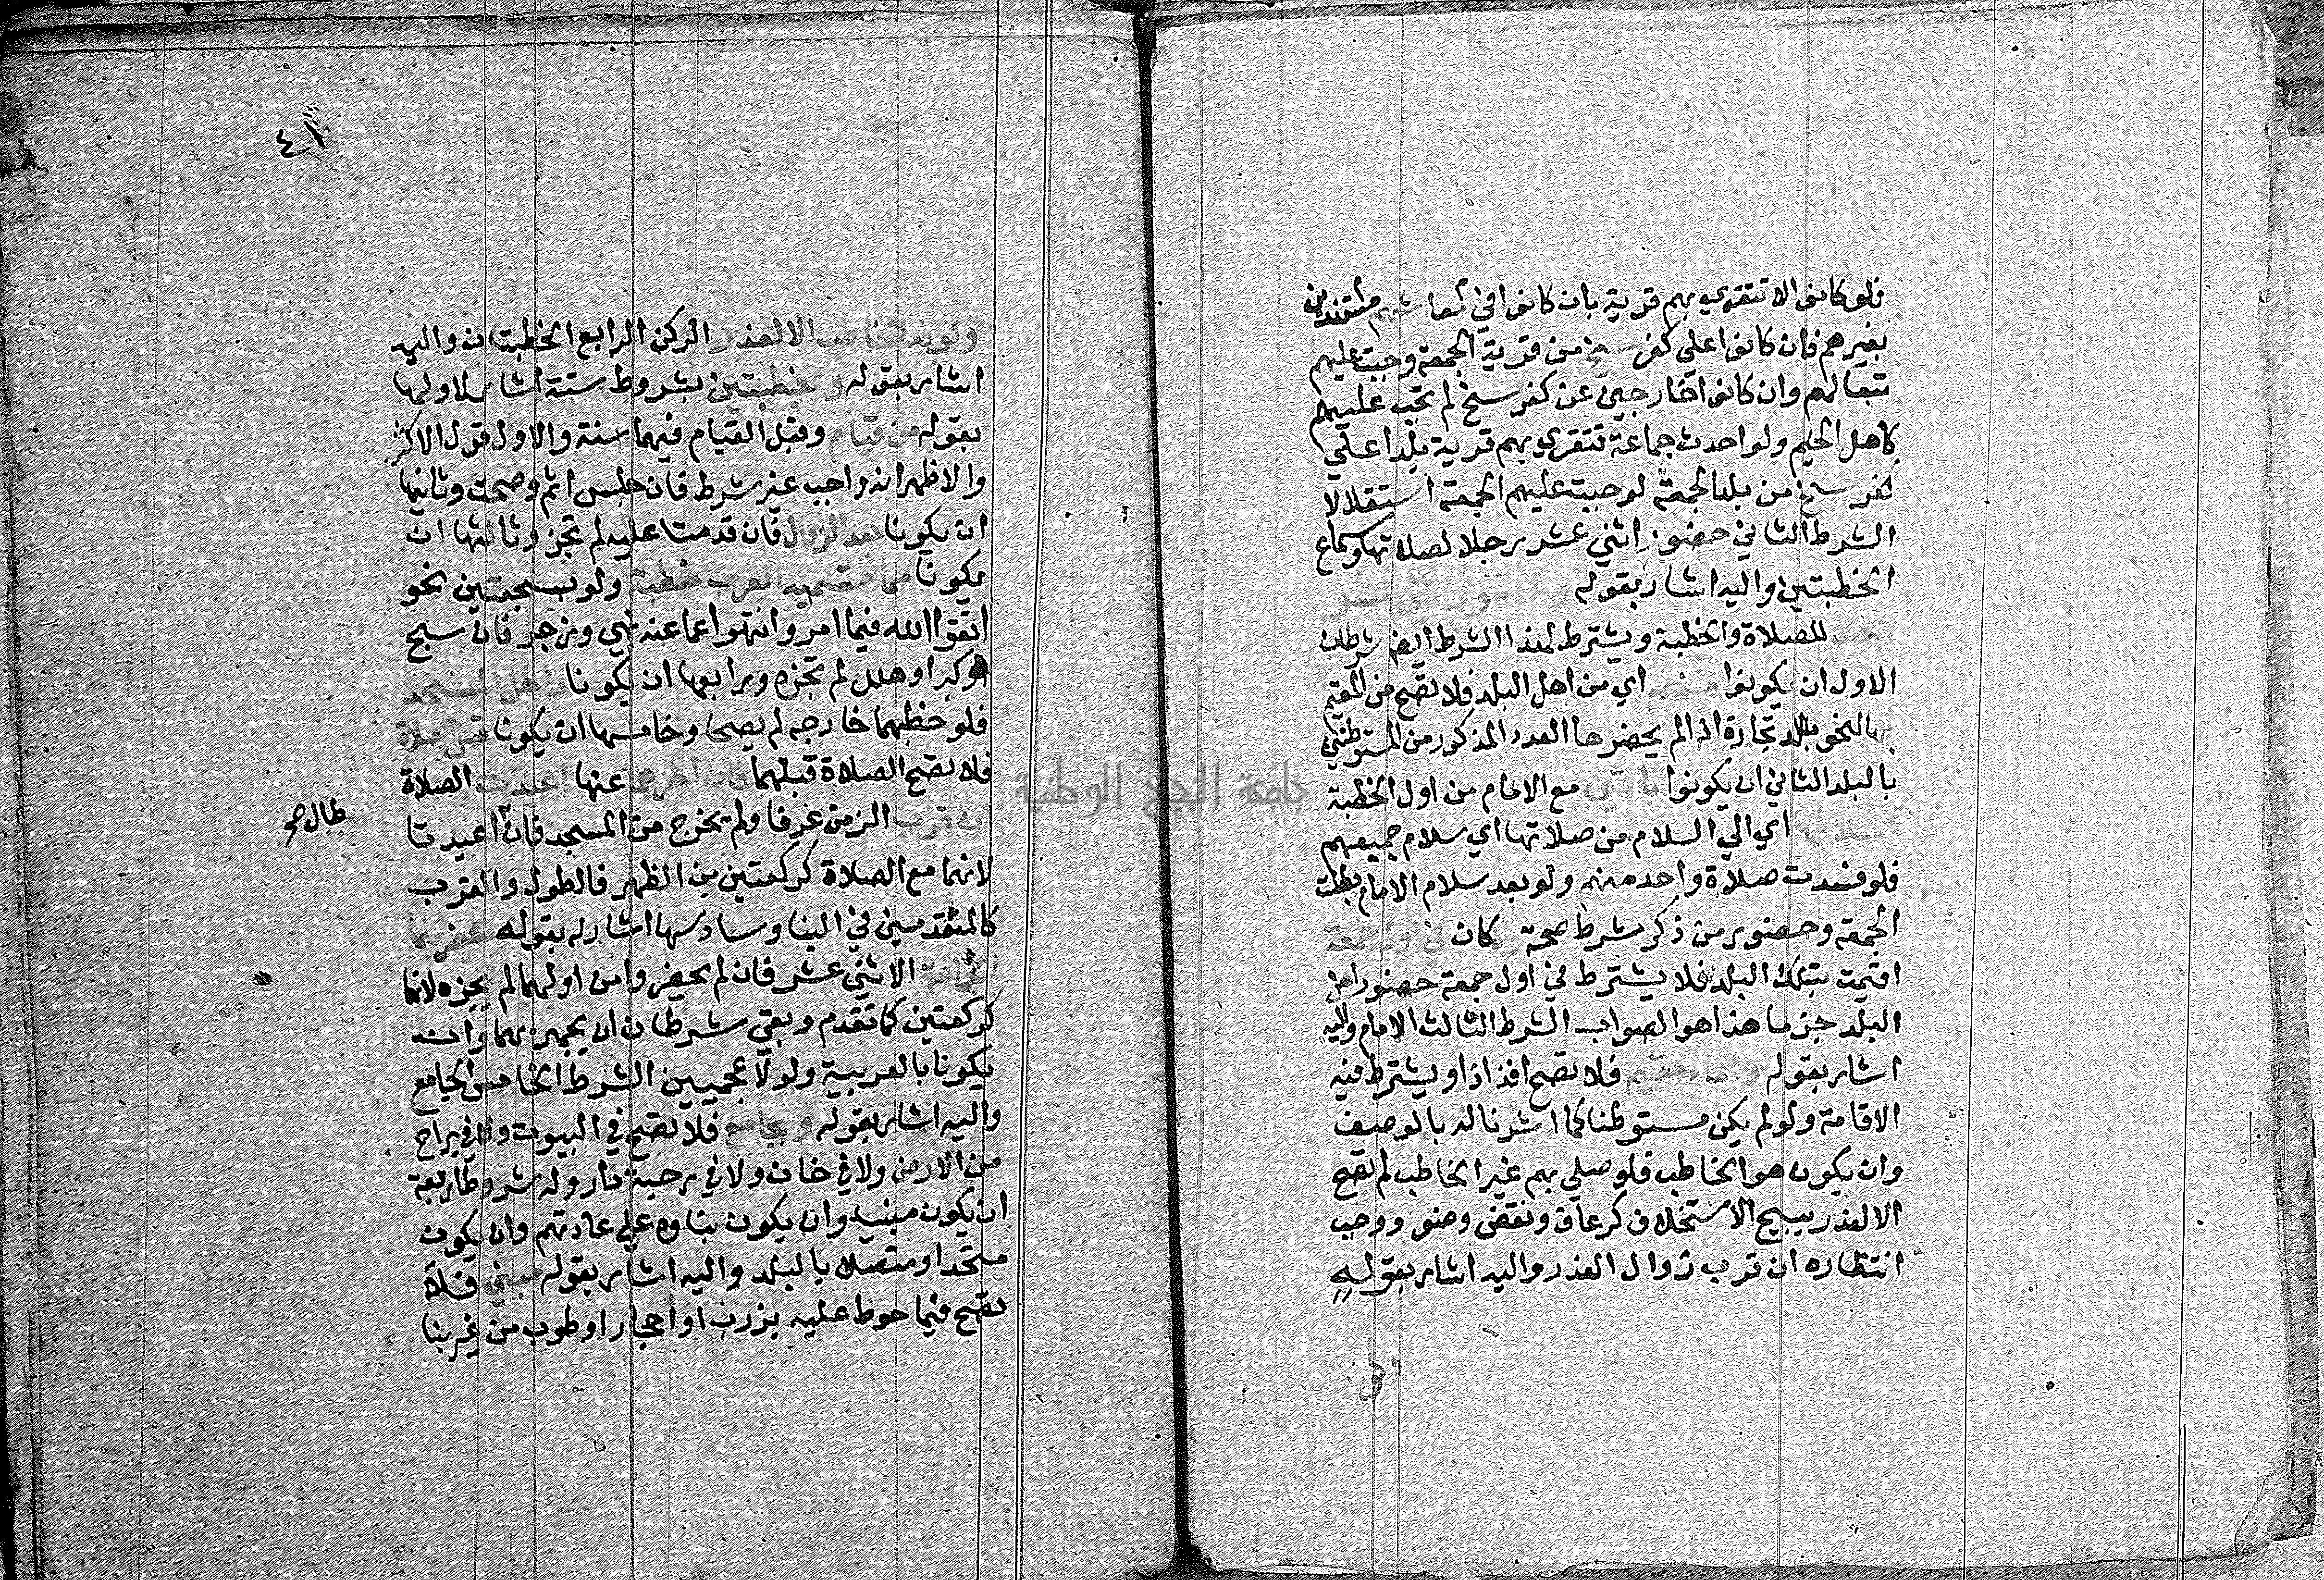 فلو كانوا لا تتقري بهم قرية بان كانوا في معاشهم مستندين
بغيرهم فان كانوا علي كفرسخ من قرية الجمعة وجبت عليهم
تبعا لهم وان كانوا خارجين عن كفرسخ لم تجب عليهم
كاهل الخيم ولو احدث جماعة تتقري بهم قرية بلدا علي
كفرسخ من بلد الجمعة لوجبت عليهم الجمعة استقلالا
الشرط الثاني حضور اثني عشر رجلا لصلاتها وسماع
الخطبتين واليه اشار بقوله وحضور اثني عشر
رجلا للصلاة والخطبة ويشترط لهذا الشرط ايضا شرطان
الاول ان يكونوا منهم اي من اهل البلد فلا تصح من المقيم
بها لنحو تجارة اذا لم يحضرها العدد المذكور من المستوطنين
بالبلد الثاني ان يكونوا باقين مع الامام من اول الخطبة
لسلامها اي الي السلام من صلاتها اي سلام جميعهم
فلو فسدت صلاة واحد منهم ولو بعد سلام الامام بطلت
الجمعة وحضور من ذكر شرط صحة وان كان في اول جمعة
اقيمت بتلك البلد فلا يشترط في اول جمعة حضور اهل
البلد جزما هذا هو الصواب الشرط الثالث الامام واليه
اشار بقوله وامام مقيم فلا تصح افذاذا ويشترط فيه
الاقامة ولو لم يكن مستوطنا كما اشرنا له بالوصف
وان يكون هو الخاطب فلو صلي بهم غير الخاطب لم تصح
الا لعذر يبيح الاستخلاف كرعاف ونقض وضو ووجب
انتظاره ان قرب زوال العذر واليه اشار بقوله
٤١
وكونه الخاطب الا لعذر الركن الرابع الخطبتان واليه
اشار بقوله وبخطبتين بشروط ستة اشار لاولها
بقوله من قيام وقيل القيام فيهما سنة والاول قول الاكثر
والاظهر انه واجب غير شرط فان جلس اثم وصحت وثانيها
ان يكونا بعد الزوال فان قدمتا عليه لم تجز وثالثها ان
يكونا مما تسميه العرب خطبة ولو بسجعتين نحو
اتقوا الله فيما امر وانتهوا عما عنه نهي وزجر فان سبح
او كبر او هلل لم تجزه ورابعها ان يكونا داخل المسجد
فلو خطبهما خارجه لم يصحا وخامسها ان يكونا قبل الصلاة
فلا تصح الصلاة قبلهما فان اخرهما عنها اعيدت الصلاة
ان قرب الزمن عرفا ولم يخرج من المسجد فان اعيدتا
طال صح
لانهما مع الصلاة كركعتين من الظهر فالطول والقرب
كالمتقدمين في البنا وسادسها اشار له بقوله تحضرهما
الجماعة الاثني عشر فان لم يحضروا من اولهما لم يجزه لانهما
كركعتين كما تقدم وبقي شرطان ان يجهر بهما وان
يكونا بالعربية ولو لاعجميين الشرط الخامس الجامع
واليه اشار بقوله وبجامع فلا تصح في البيوت ولا في براح
من الارض ولا في خان ولا في رحبة دار وله شروط اربعة
ان يكون مبنيا وان يكون بناوه علي عادتهم وان يكون
متحدا ومتصلا بالبلد واليه اشار بقوله مبني فلا
تصح فيما حوط عليه بزرب او احجار او طوب من غير بنا
جامعة النجاح الوطنية